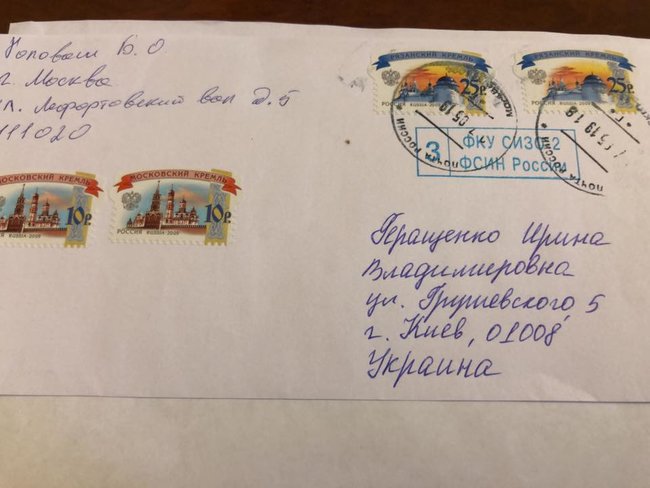 Поповым В. О.
г. Москва
ул. Лефортовский вал д. 5
111020
РЯЗАНСКИЙ КРЕМЛЬ
25р.
РОССИЯ RUSSIA·2009
РЯЗАНСКИЙ КРЕМЛЬ
25р.
РОССИЯ RUSSIA·2009
МОСКВА
05 19
ПОЧТА РОССИИ
05 19 18
ПОЧТА РОССИИ
3
ФКУ СИЗО-2
ФСИН России
МОСКОВСКИЙ КРЕМЛЬ
10р.
RUSSIA·2009
МОСКОВСКИЙ КРЕМЛЬ
10р.
РОССИЯ RUSSIA·2009
Геращенко Ирина
Владимировна
ул. Грушевского 5
г. Киев, 01008
Украина